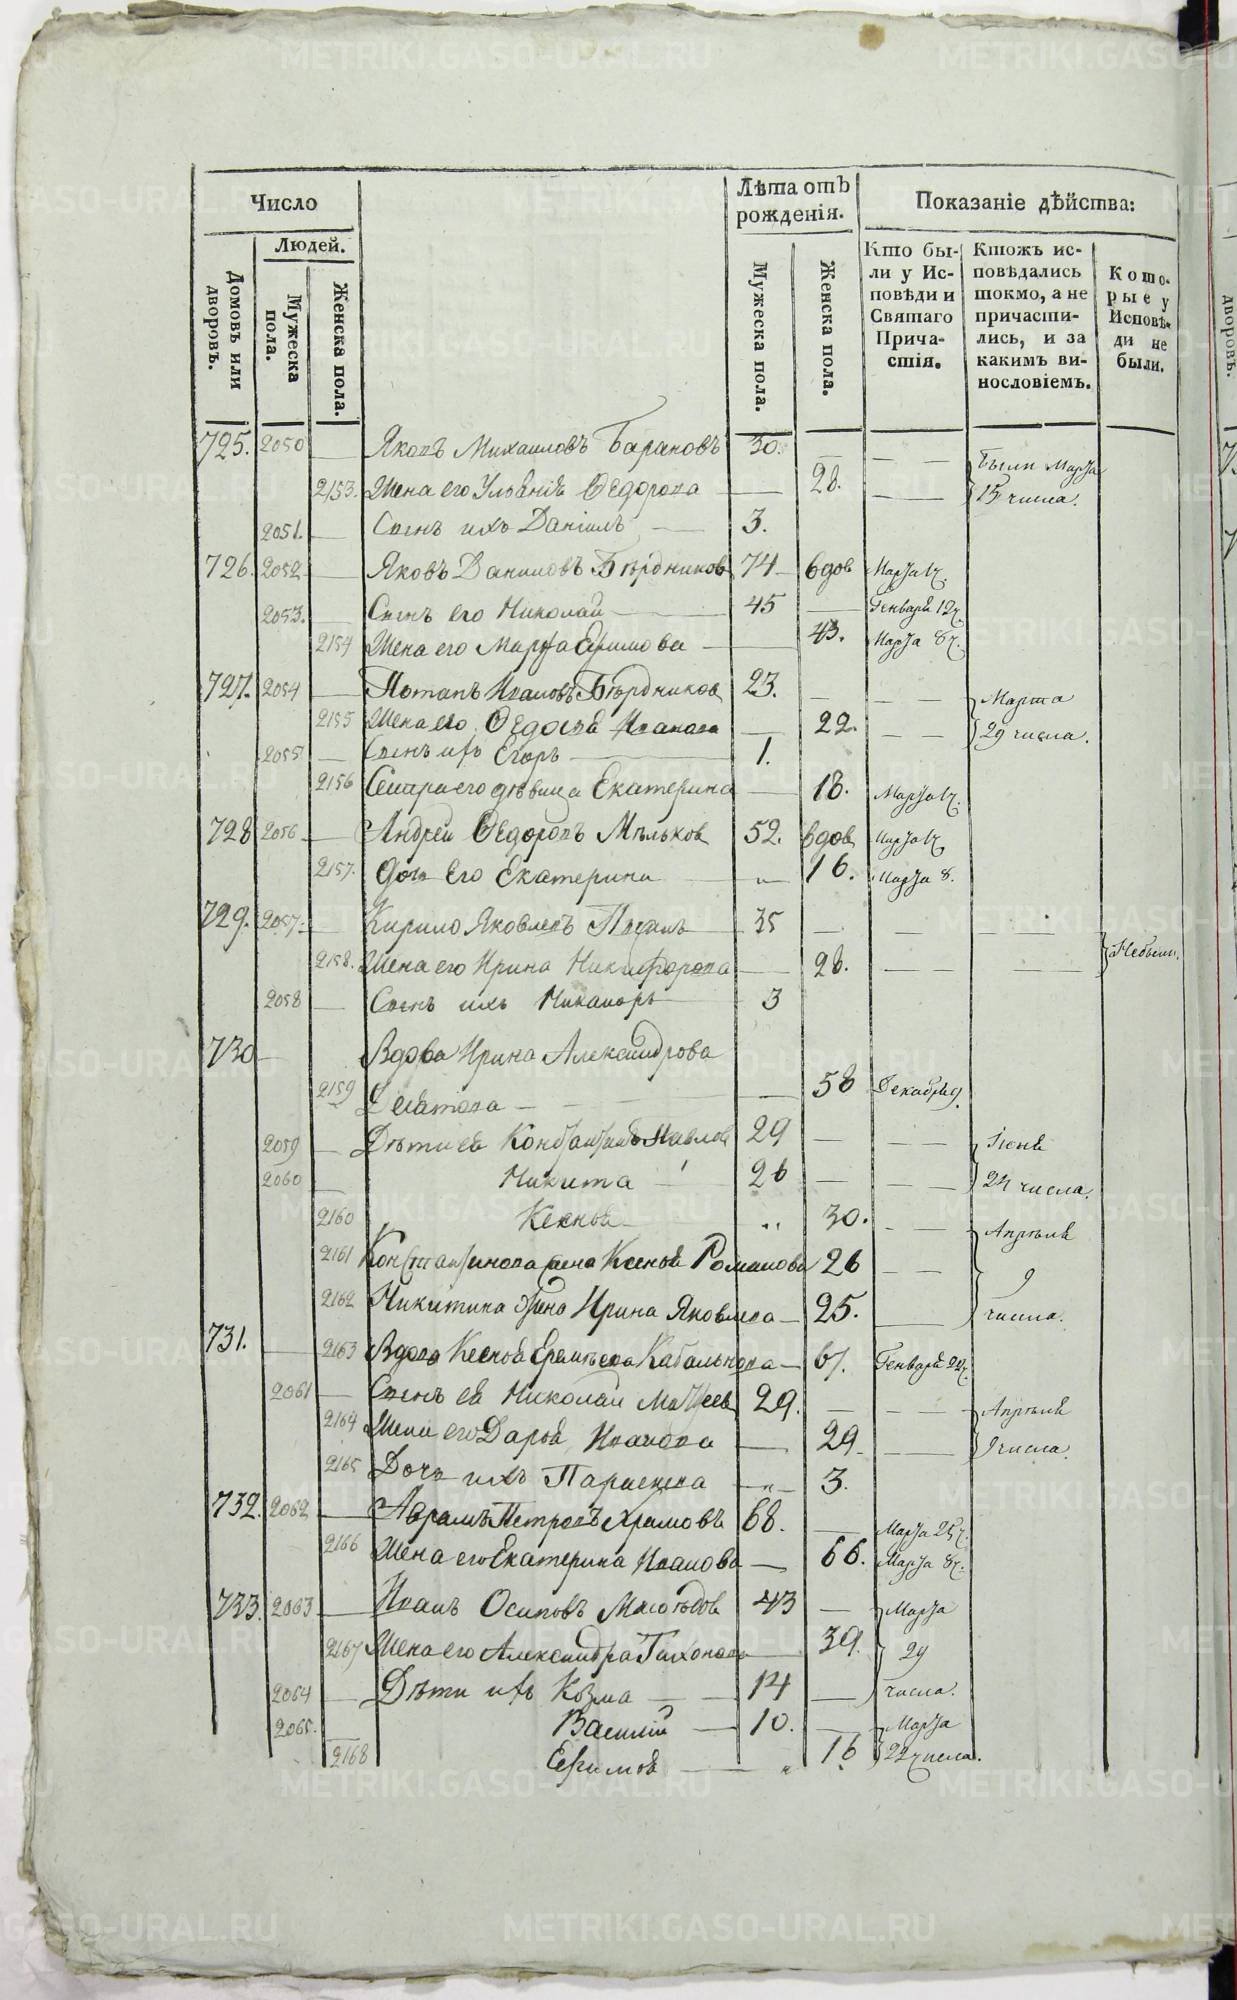 Число
Лѣта отъ рожденія.
Показаніе дѣйства:
Людей.
Домовъ или дворовъ.
Мужеска пола.
Женска пола.
Мужеска пола.
Женска пола.
Кто бы-
ли у Ис-
повѣди и
Святаго
Прича-
стія.
Ктожъ ис-
повѣдались
токмо, а не
причасти-
лись, и за
какимъ ви-
нословіемъ.
Кото-
рые у
Исповѣ-
ди не
были.
725. 2050 Яковъ Михаиловъ Барановъ 30. Были Марта
2153. Жена его Ульянія Федорова 28. 15 числа.
2051. Сынъ ихъ Даніилъ 3.
726. 2052 Яковъ Даниловъ Бѣрдниковъ 74 вдов Марта
2053. Сынъ его Николай 45 Генваря 12ч.
2154 Жена его Марѳа Ефимова 43. Марта 8ч.
727. 2054 Потапъ Ивановъ Бѣрдников 23. Марта
2155 Жена его Федосья Иванова 22. 29 числа.
2055 Сынъ ихъ Егоръ 1.
2156 Сестра его дѣвица Екатерина 18. Марта
728 2056 Андрей Федоровъ Мѣльков 52. вдов Марта
2157. Дочь его Екатерина " 16. Марта 8.
729. 2057. Кирило Яковлевъ 35
2158. Жена его Ирина Никифорова 28. Небыли.
2058 Сынъ ихъ Никаноръ 3
730 Вдова Ирина Александрова
2159 58 Декабря 9.
2059 Дѣти ея Константинъ Павлов 29 Іюня
2060 Никита 26 24 числа.
2160 Ксенья " 30. Апрѣля
2161 Константинова жена Ксенья Романова 26 9
2162 Никитина жена Ирина Яковлева 25. числа.
731. 2163 Вдова Ксенья Еремѣева Кабальнова 67. Генваря 22ч.
2061 Сынъ ея Николай Матѳеев 29. Апрѣля
2164 Жена его Дарья Иванова 29 9 числа.
2165 Дочь ихъ Параскева " 3.
732. 2062 Аврамъ Петровъ Храмовъ 68. Марта 25ч.
2166 Жена его Екатерина Иванова 66. Марта 8ч.
733. 2063 Иванъ Осиповъ 43 Марта
2167 Жена его Александра Тихонова 39. 29
2064 Дѣти ихъ Козма 14 числа.
2065. Василій 10. Марта
2168 Ефимья " 16 22 числа.
дворовъ.
METRIKI.GASO-URAL.RU